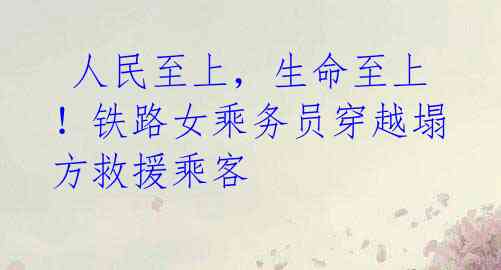 人民至上，生命至上
！铁路女乘务员穿越塌
方救援乘客